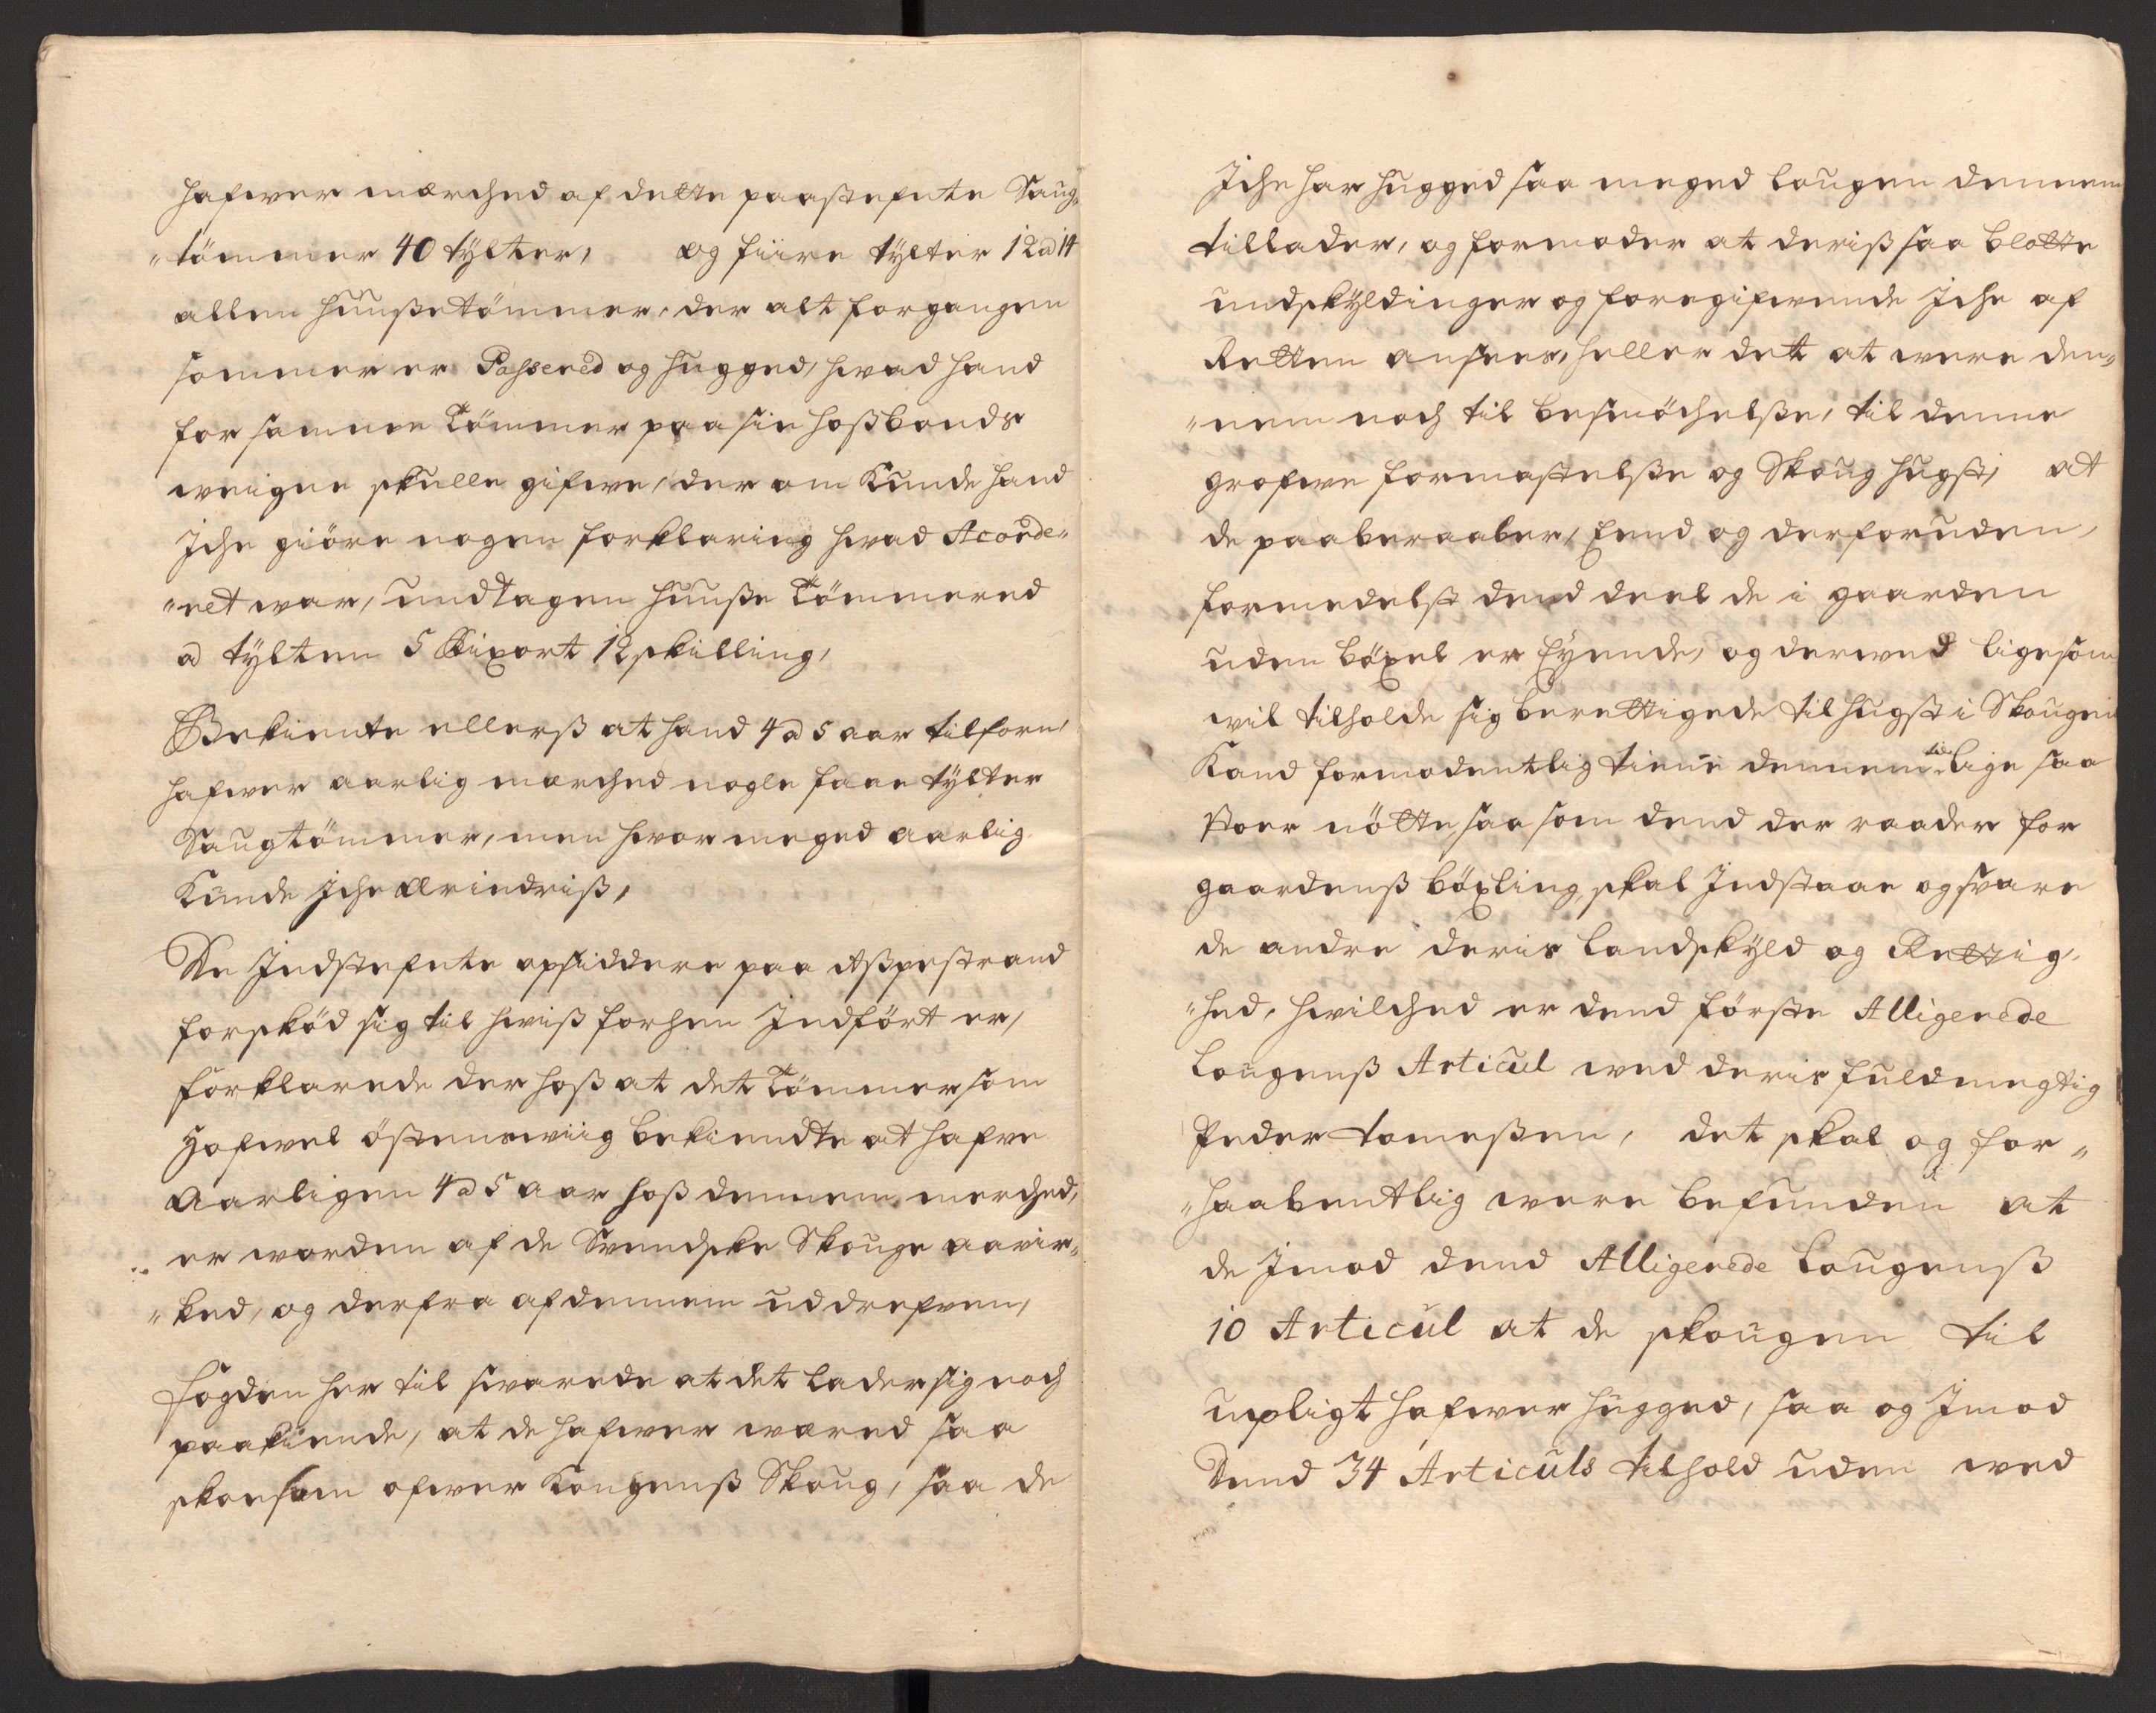 hafwer mærched af dette paastefnte Saug-
"tömmer 40 tÿlter, og fiire tÿlter 12 a 14
allen huußetömmer, der alt forgangen
sommer er Passered og hugged, hwad hand
for samme Tömmer paa sin hoßbonds
weigne skulle gifwe, der om Kunde hand
Iche giöre nogen forklaring hwad Acorde-
"ret war, undtagen huuße Tömmered
a tÿlten 5 Rixort 12 skilling,
Bekiente ellerß at hand 4 a 5 aar tilforn,
hafwer aarlig mærched nogle faae tÿlter
Saugtömmer, men hwor meged aarlig
Kunde Iche Erindriß,
De Indstefnte opsiddere paa Aßpestrand
forskiöd sig til hwiß forhen Indfört er,
forklarede der hoß at det Tömmer som
Hofwel östenswiig bekiendte at hafve
Aarligen 4 a 5 aar hoß dennem merched,
er worden af de Svendske Skouge aavir-
"ked, og derfra af dennem uddrefven,
fogden her til swarede at det lader sig noch
paakiende, at de hafwer wæred saa
skonsom ofwer Kongenß Skoug, saa de
Iche har hugged saa meged lougen dennem
tillader, og formoder at deriß saa blotte
undskÿldinger og foregifwende Iche af
Retten ansees, heller dett at were den-
"nem noch til besmöchelße, til denne
grofwe formastelße og Skoug hugst, at
de paaberaaber, Eend og derforuden,
formedelst dend deel de i gaarden
uden böxel er Eyende, og derwed ligesom
wil tilholde sig berettigede til hugst i Skougen
Kand formodentlig tiene dennem til lige saa
stoer nötte saa som dend der raader for
gaardenß böxling, skal Indstaae og svare
de andre deris landskÿld og Rettig-
"hed, hwilched er dend förste Alligerede
Lougenß Articul wed deris fuldmegtig
Peder tomeßen, det skal og for-
"haabentlig were befunden at
de Imod dend Alligerede Lougenß
10 Articul at de skougen til
upligt hafwer hugged, saa og Imod
Dend 34 Articuls tilhold uden wed